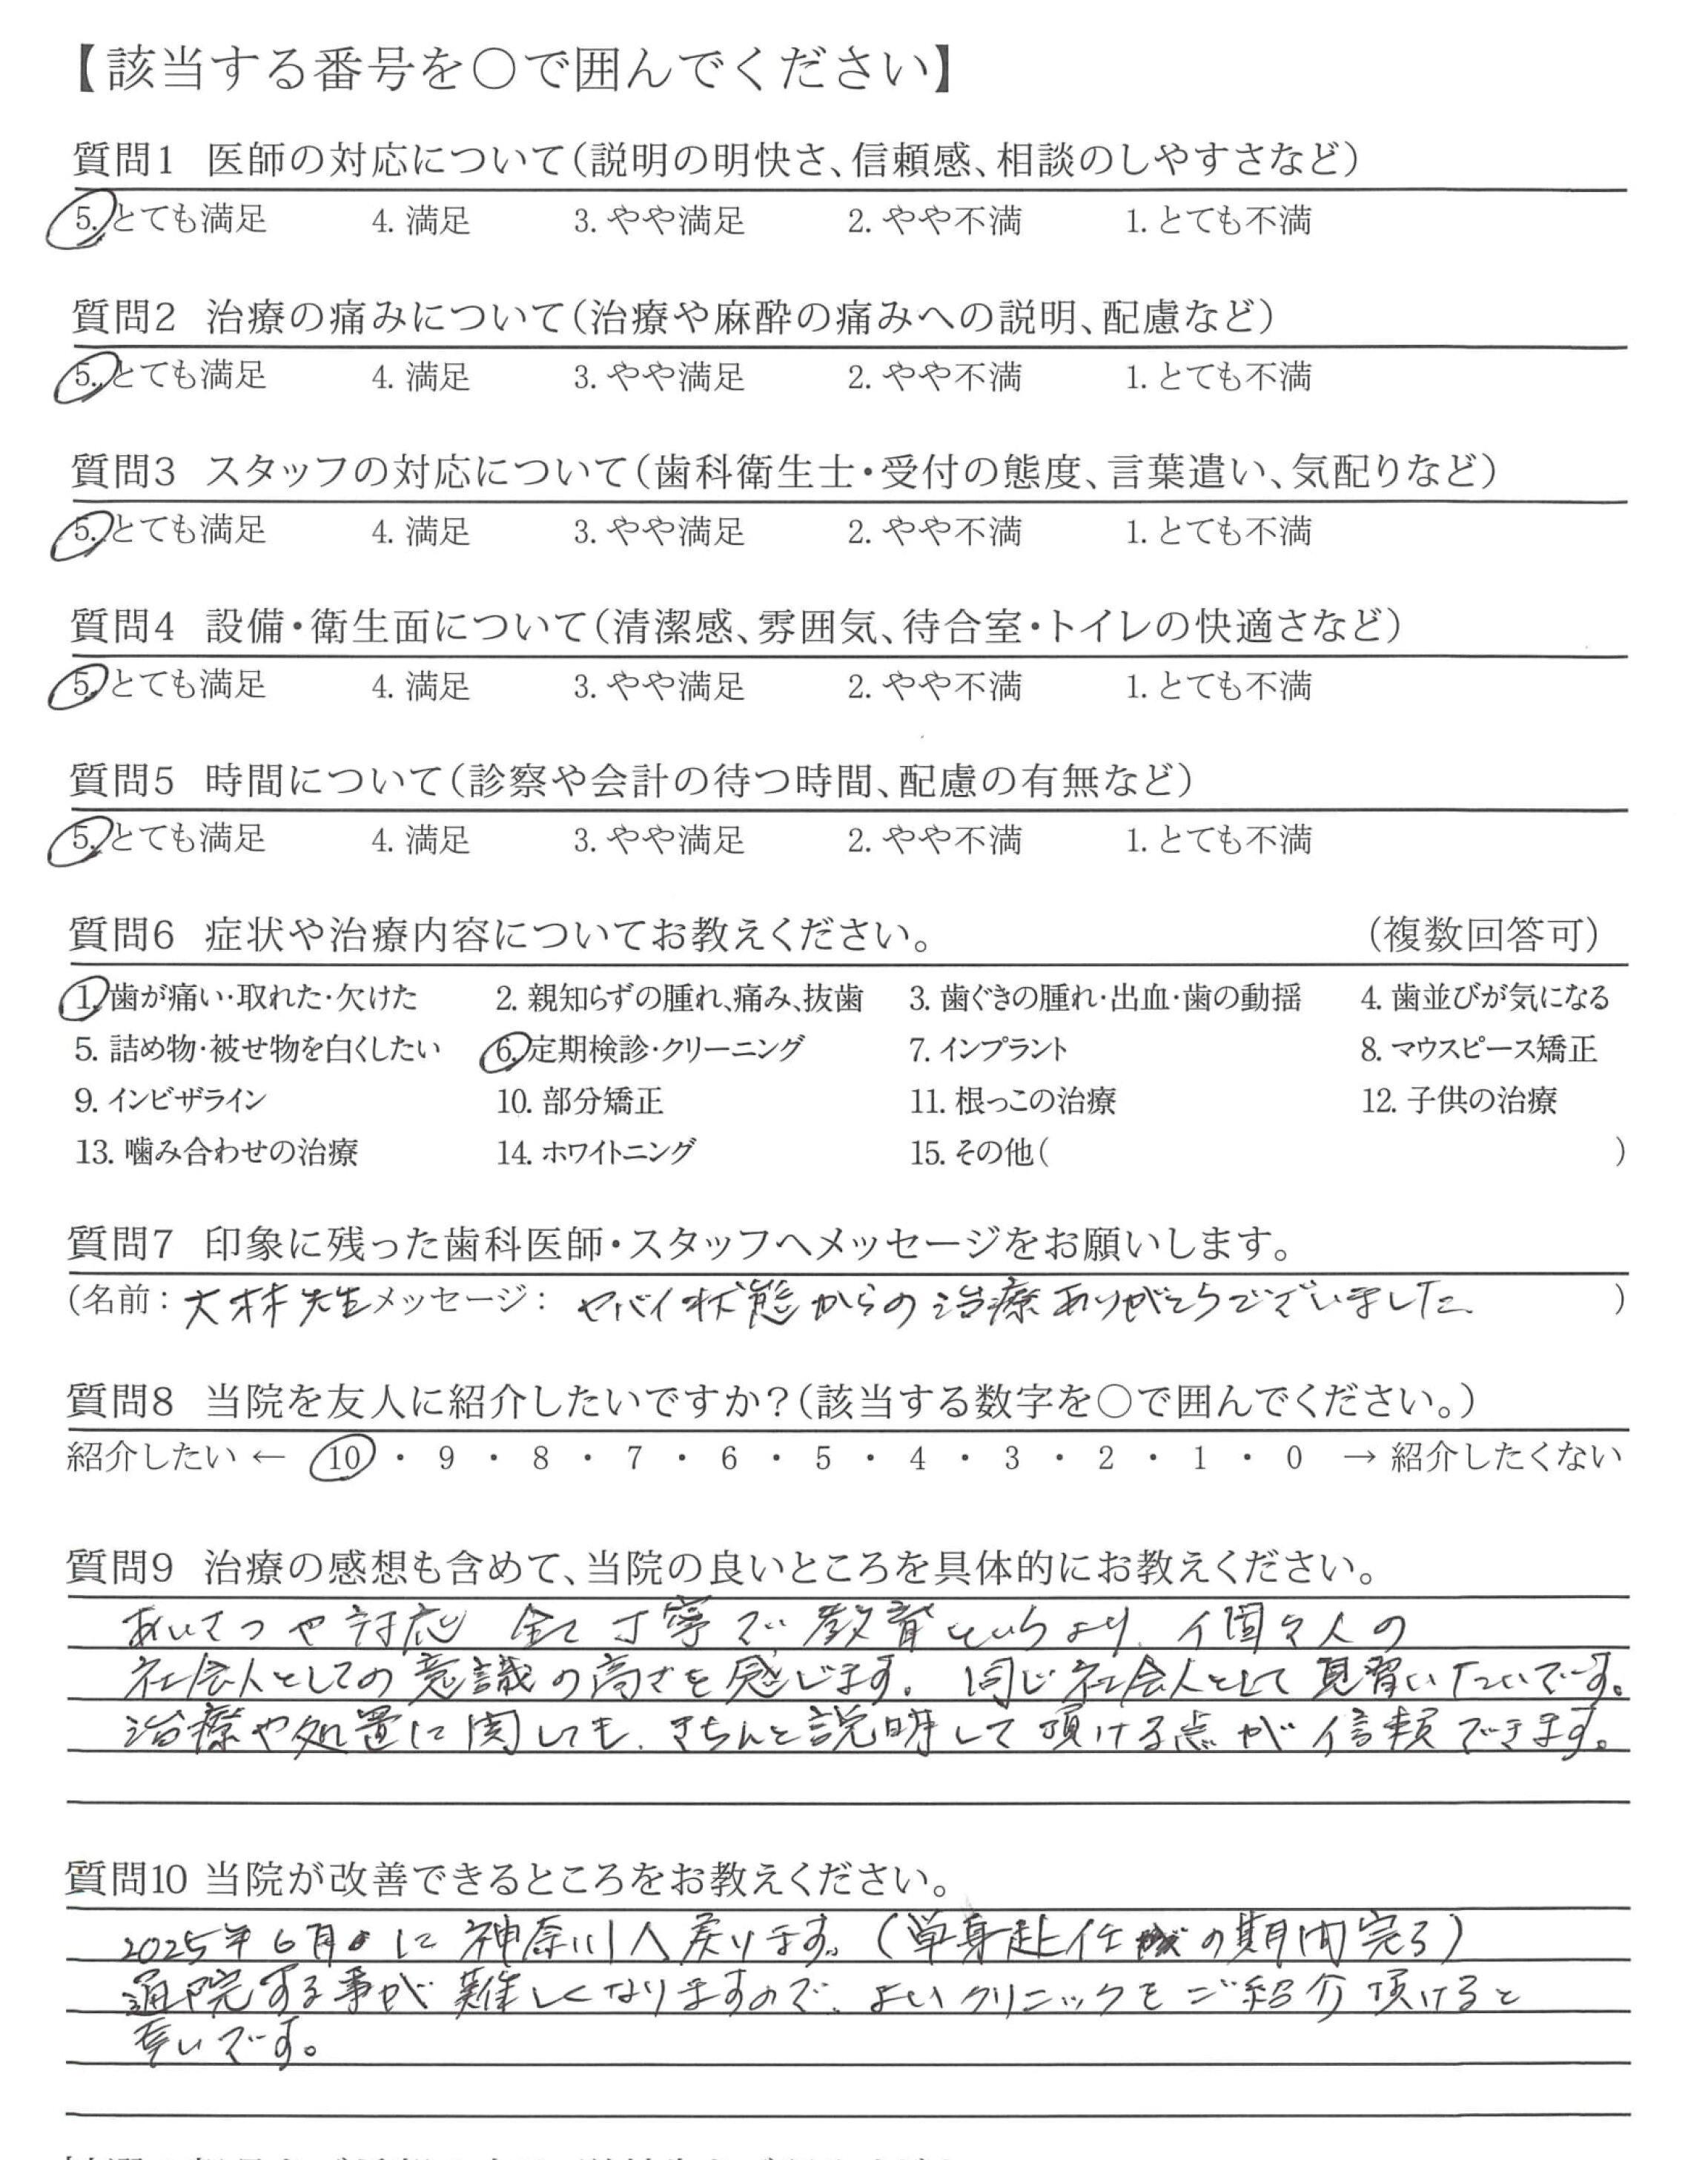 【該当する番号を○で囲んでください】
質問1 医師の対応について（説明の明快さ、信頼感、相談のしやすさなど）
5. とても満足 4. 満足 3. やや満足 2. やや不満 1. とても不満
質問2 治療の痛みについて（治療や麻酔の痛みへの説明、配慮など）
5. とても満足 4. 満足 3. やや満足 2. やや不満 1. とても不満
質問3 スタッフの対応について（歯科衛生士・受付の態度、言葉遣い、気配りなど）
5. とても満足 4. 満足 3. やや満足 2. やや不満 1. とても不満
質問4 設備・衛生面について（清潔感、雰囲気、待合室・トイレの快適さなど）
5. とても満足 4. 満足 3. やや満足 2. やや不満 1. とても不満
質問5 時間について（診察や会計の待つ時間、配慮の有無など）
5. とても満足 4. 満足 3. やや満足 2. やや不満 1. とても不満
質問6 症状や治療内容についてお教えください。 （複数回答可）
1. 歯が痛い・取れた・欠けた 2. 親知らずの腫れ、痛み、抜歯 3. 歯ぐきの腫れ・出血・歯の動揺 4. 歯並びが気になる
5. 詰め物・被せ物を白くしたい 6. 定期検診・クリーニング 7. インプラント 8. マウスピース矯正
9. インビザライン 10. 部分矯正 11. 根っこの治療 12. 子供の治療
13. 噛み合わせの治療 14. ホワイトニング 15. その他（ ）
質問7 印象に残った歯科医師・スタッフへメッセージをお願いします。
（名前：大林先生 メッセージ：ヤバイ状態からの治療ありがとうございました。 ）
質問8 当院を友人に紹介したいですか？（該当する数字を○で囲んでください。）
紹介したい ← 10 ・ 9 ・ 8 ・ 7 ・ 6 ・ 5 ・ 4 ・ 3 ・ 2 ・ 1 ・ 0 → 紹介したくない
質問9 治療の感想も含めて、当院の良いところを具体的にお教えください。
あいさつや対応 全て丁寧で教育というより、個々人の
社会人としての意識の高さを感じます。同じ社会人として見習いたいです。
治療や処置に関しても、きちんと説明して頂ける点が信頼できます。
質問10 当院が改善できるところをお教えください。
2025年6月に神奈川へ戻ります。（単身赴任の期間完了）
通院する事が難しくなりますので、よいクリニックをご紹介頂けると
幸いです。